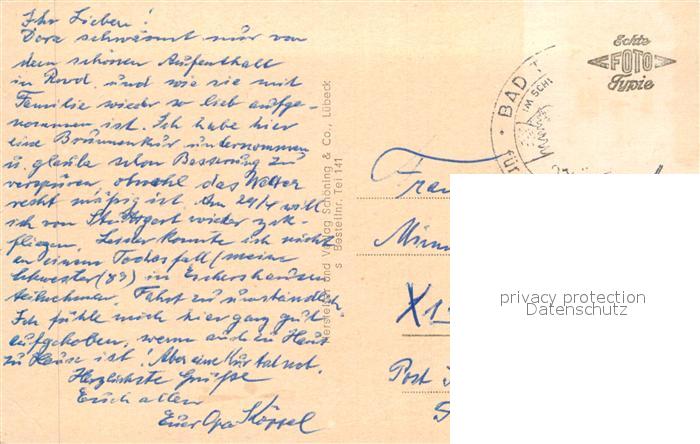 Ihr Lieben!
Dora schwärmt nur von
dem schönen Aufenthalt
in und wie sie mit
Familie wieder so lieb aufge-
nommen ist. Ich habe hier
eine Brunnenkur unternommen
u. glaube schon Besserung zu
verspüren, obwohl das Wetter
recht mäßig ist. Am 29/4 will
ich von Stuttgart wieder zck-
fliegen. Leider konnte ich nicht
an einem Todesfall (meine
Schwester (89) in Eschershausen
teilnehmen. Fahrt zu umständlich.
Ich fühle mich hier ganz gut
aufgehoben, wenn auch zu Haus
zu Hause ist! Aber eine Kur tat not.
Herzlichste Grüße
Euch allen
Euer Opa
Hersteller und Verlag Schöning & Co., Lübeck
s Bestellnr. Tei 141
Echte
FOTO
Typie
• BAD
IM SCHI
für
Frau
X1
Post
privacy protection
Datenschutz